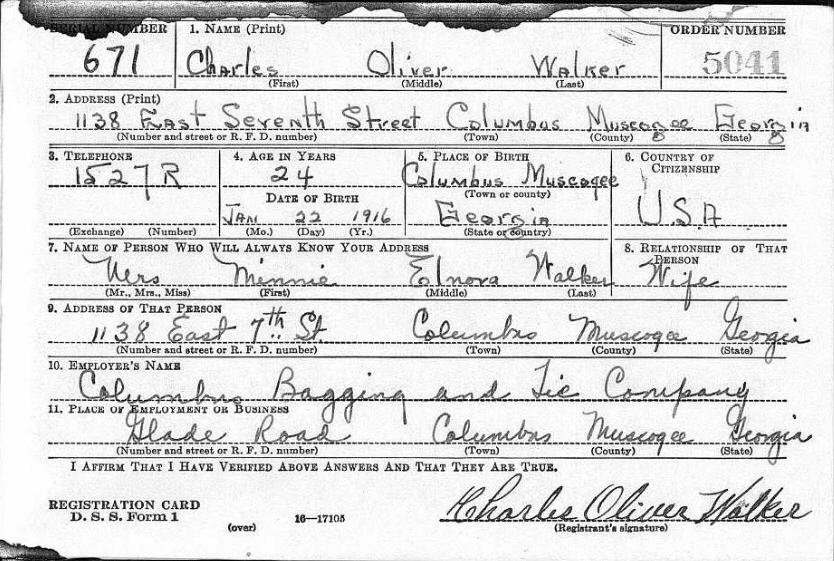 SERIAL NUMBER 1. NAME (Print) ORDER NUMBER
671 Charles Oliver Walker 5041
(First) (Middle) (Last)
2. ADDRESS (Print)
1138 East Seventh Street Columbus Muscogee Georgia
(Number and street or R. F. D. number) (Town) (County) (State)
3. TELEPHONE 4. AGE IN YEARS 5. PLACE OF BIRTH 6. COUNTRY OF CITIZENSHIP
1527 R 24 Columbus Muscogee
(Town or county)
DATE OF BIRTH
JAN 22 1916 Georgia USA
(Exchange) (Number) (Mo.) (Day) (Yr.) (State or country)
7. NAME OF PERSON WHO WILL ALWAYS KNOW YOUR ADDRESS 8. RELATIONSHIP OF THAT PERSON
Mrs Minnie Elnora Walker Wife
(Mr., Mrs., Miss) (First) (Middle) (Last)
9. ADDRESS OF THAT PERSON
1138 East 7th St. Columbus Muscogee Georgia
(Number and street or R. F. D. number) (Town) (County) (State)
10. EMPLOYER'S NAME
Columbus Bagging and Tie Company
11. PLACE OF EMPLOYMENT OR BUSINESS
Glade Road Columbus Muscogee Georgia
(Number and street or R. F. D. number) (Town) (County) (State)
I AFFIRM THAT I HAVE VERIFIED ABOVE ANSWERS AND THAT THEY ARE TRUE.
REGISTRATION CARD
D. S. S. Form 1 (over) 16—17105 Charles Oliver Walker
(Registrant's signature)